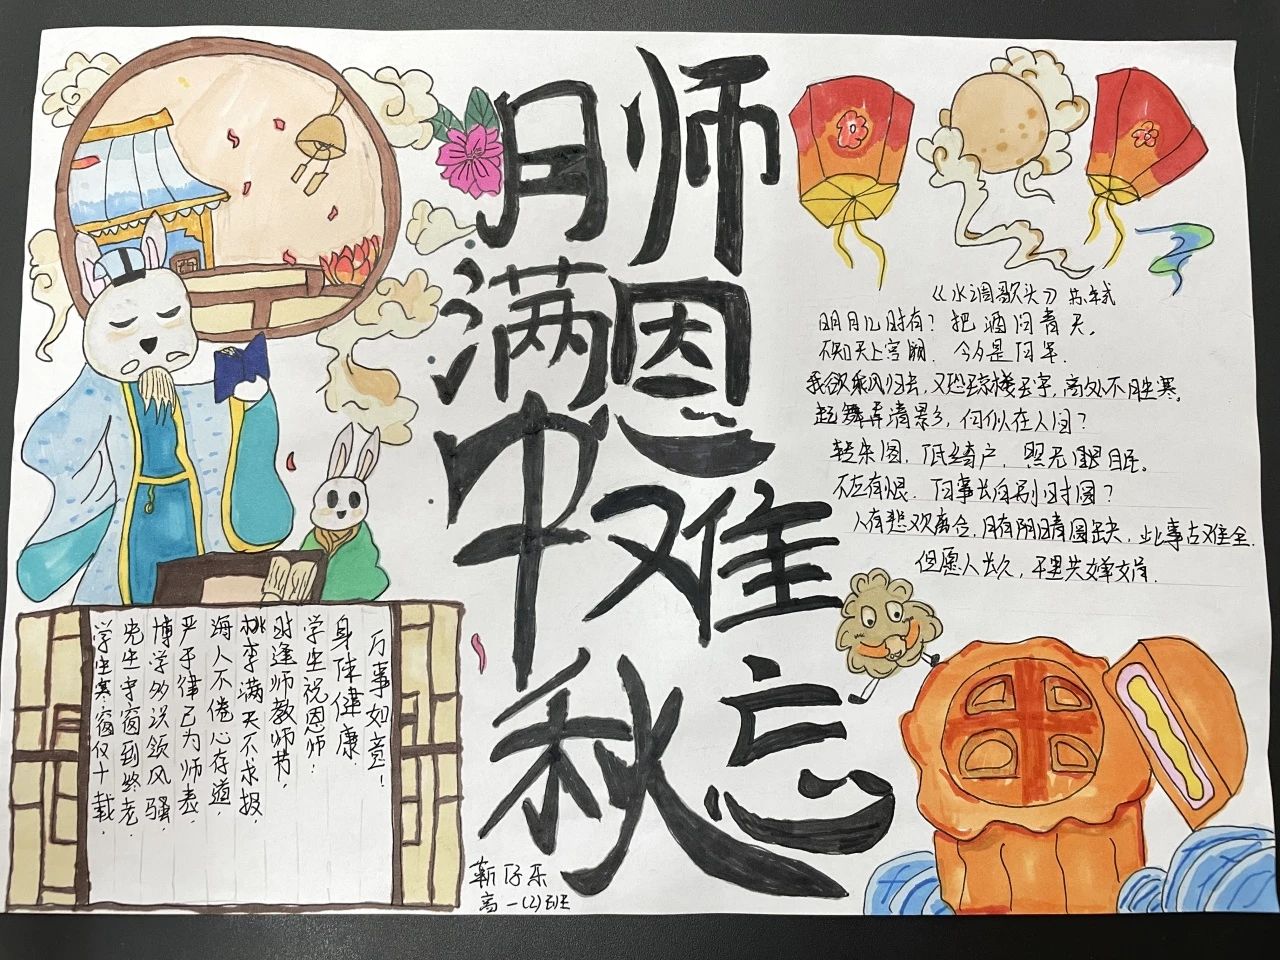 师恩难忘
月满中秋
《水调歌头》苏轼
明月几时有？把酒问青天。
不知天上宫阙.今夕是何年.
我欲乘风归去,又恐琼楼玉宇,高处不胜寒。
起舞弄清影,何似在人间？
转朱阁,低绮户,照无眠。
不应有恨.何事长向别时圆？
人有悲欢离合,月有阴晴圆缺,此事古难全.
但愿人长久,千里共婵娟.
学生寒窗仅十载.
先生守窗到终老.
博学多识领风骚.
严于律己为师表.
海人不倦心存道.
桃李满天不求报.
时逢师教师节,
学生祝恩师:
身体健康
万事如意!
靳仔乐
高一(2)班